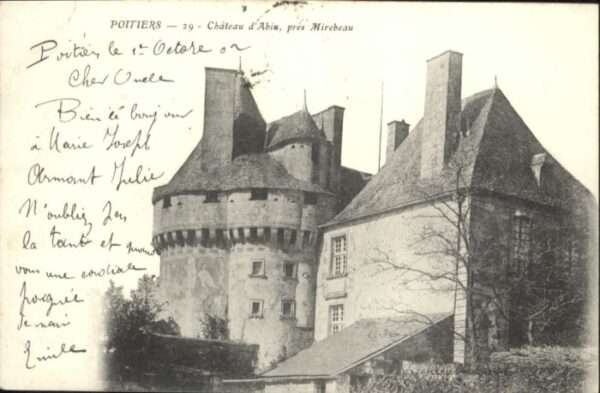 POITIERS — 29 - Château d'Abin, près Mirebeau
Poitiers le 1er Octore 02
Cher Oncle
Bien le bonjour
à Marie Joseph
Armant Julie
N'oubliez pas
la tante et
vous une cordiale
poignée
de main
Emile